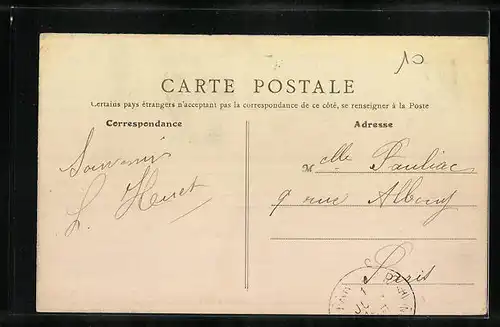 10
CARTE POSTALE
Certains pays étrangers n'acceptant pas la correspondance de ce côté, se renseigner à la Poste
Correspondance
Adresse
Souvenir
L. Huet
Mlle Pauliac
9 rue Albouy
Paris